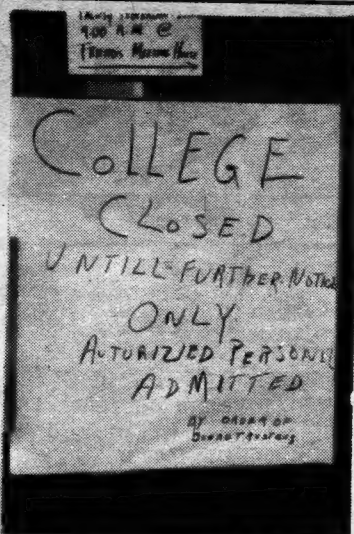 9:00 A.M. @
FRIENDS MEETING HOUSE
COLLEGE
CLOSED
UNTILL FURTHER NOTICE
ONLY
AUTURIZIED PERSONEL
ADMITTED
BY ORDER OF
BOARD TRUSTEES